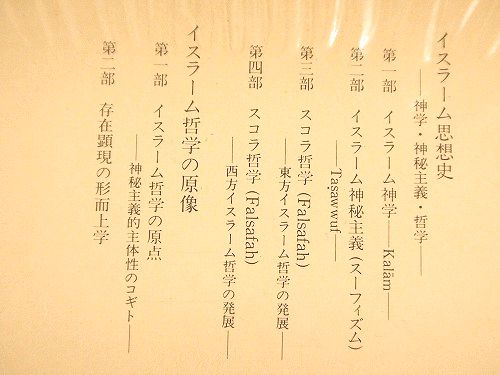 イスラーム思想史
――神学・神秘主義・哲学――
第一部 イスラーム神学――Kalām――
第二部 イスラーム神秘主義(スーフィズム)
――Taṣawwuf――
第三部 スコラ哲学(Falsafah)
――東方イスラーム哲学の発展――
第四部 スコラ哲学(Falsafah)
――西方イスラーム哲学の発展――
イスラーム哲学の原像
第一部 イスラーム哲学の原点
――神秘主義的主体性のコギト――
第二部 存在顕現の形而上学